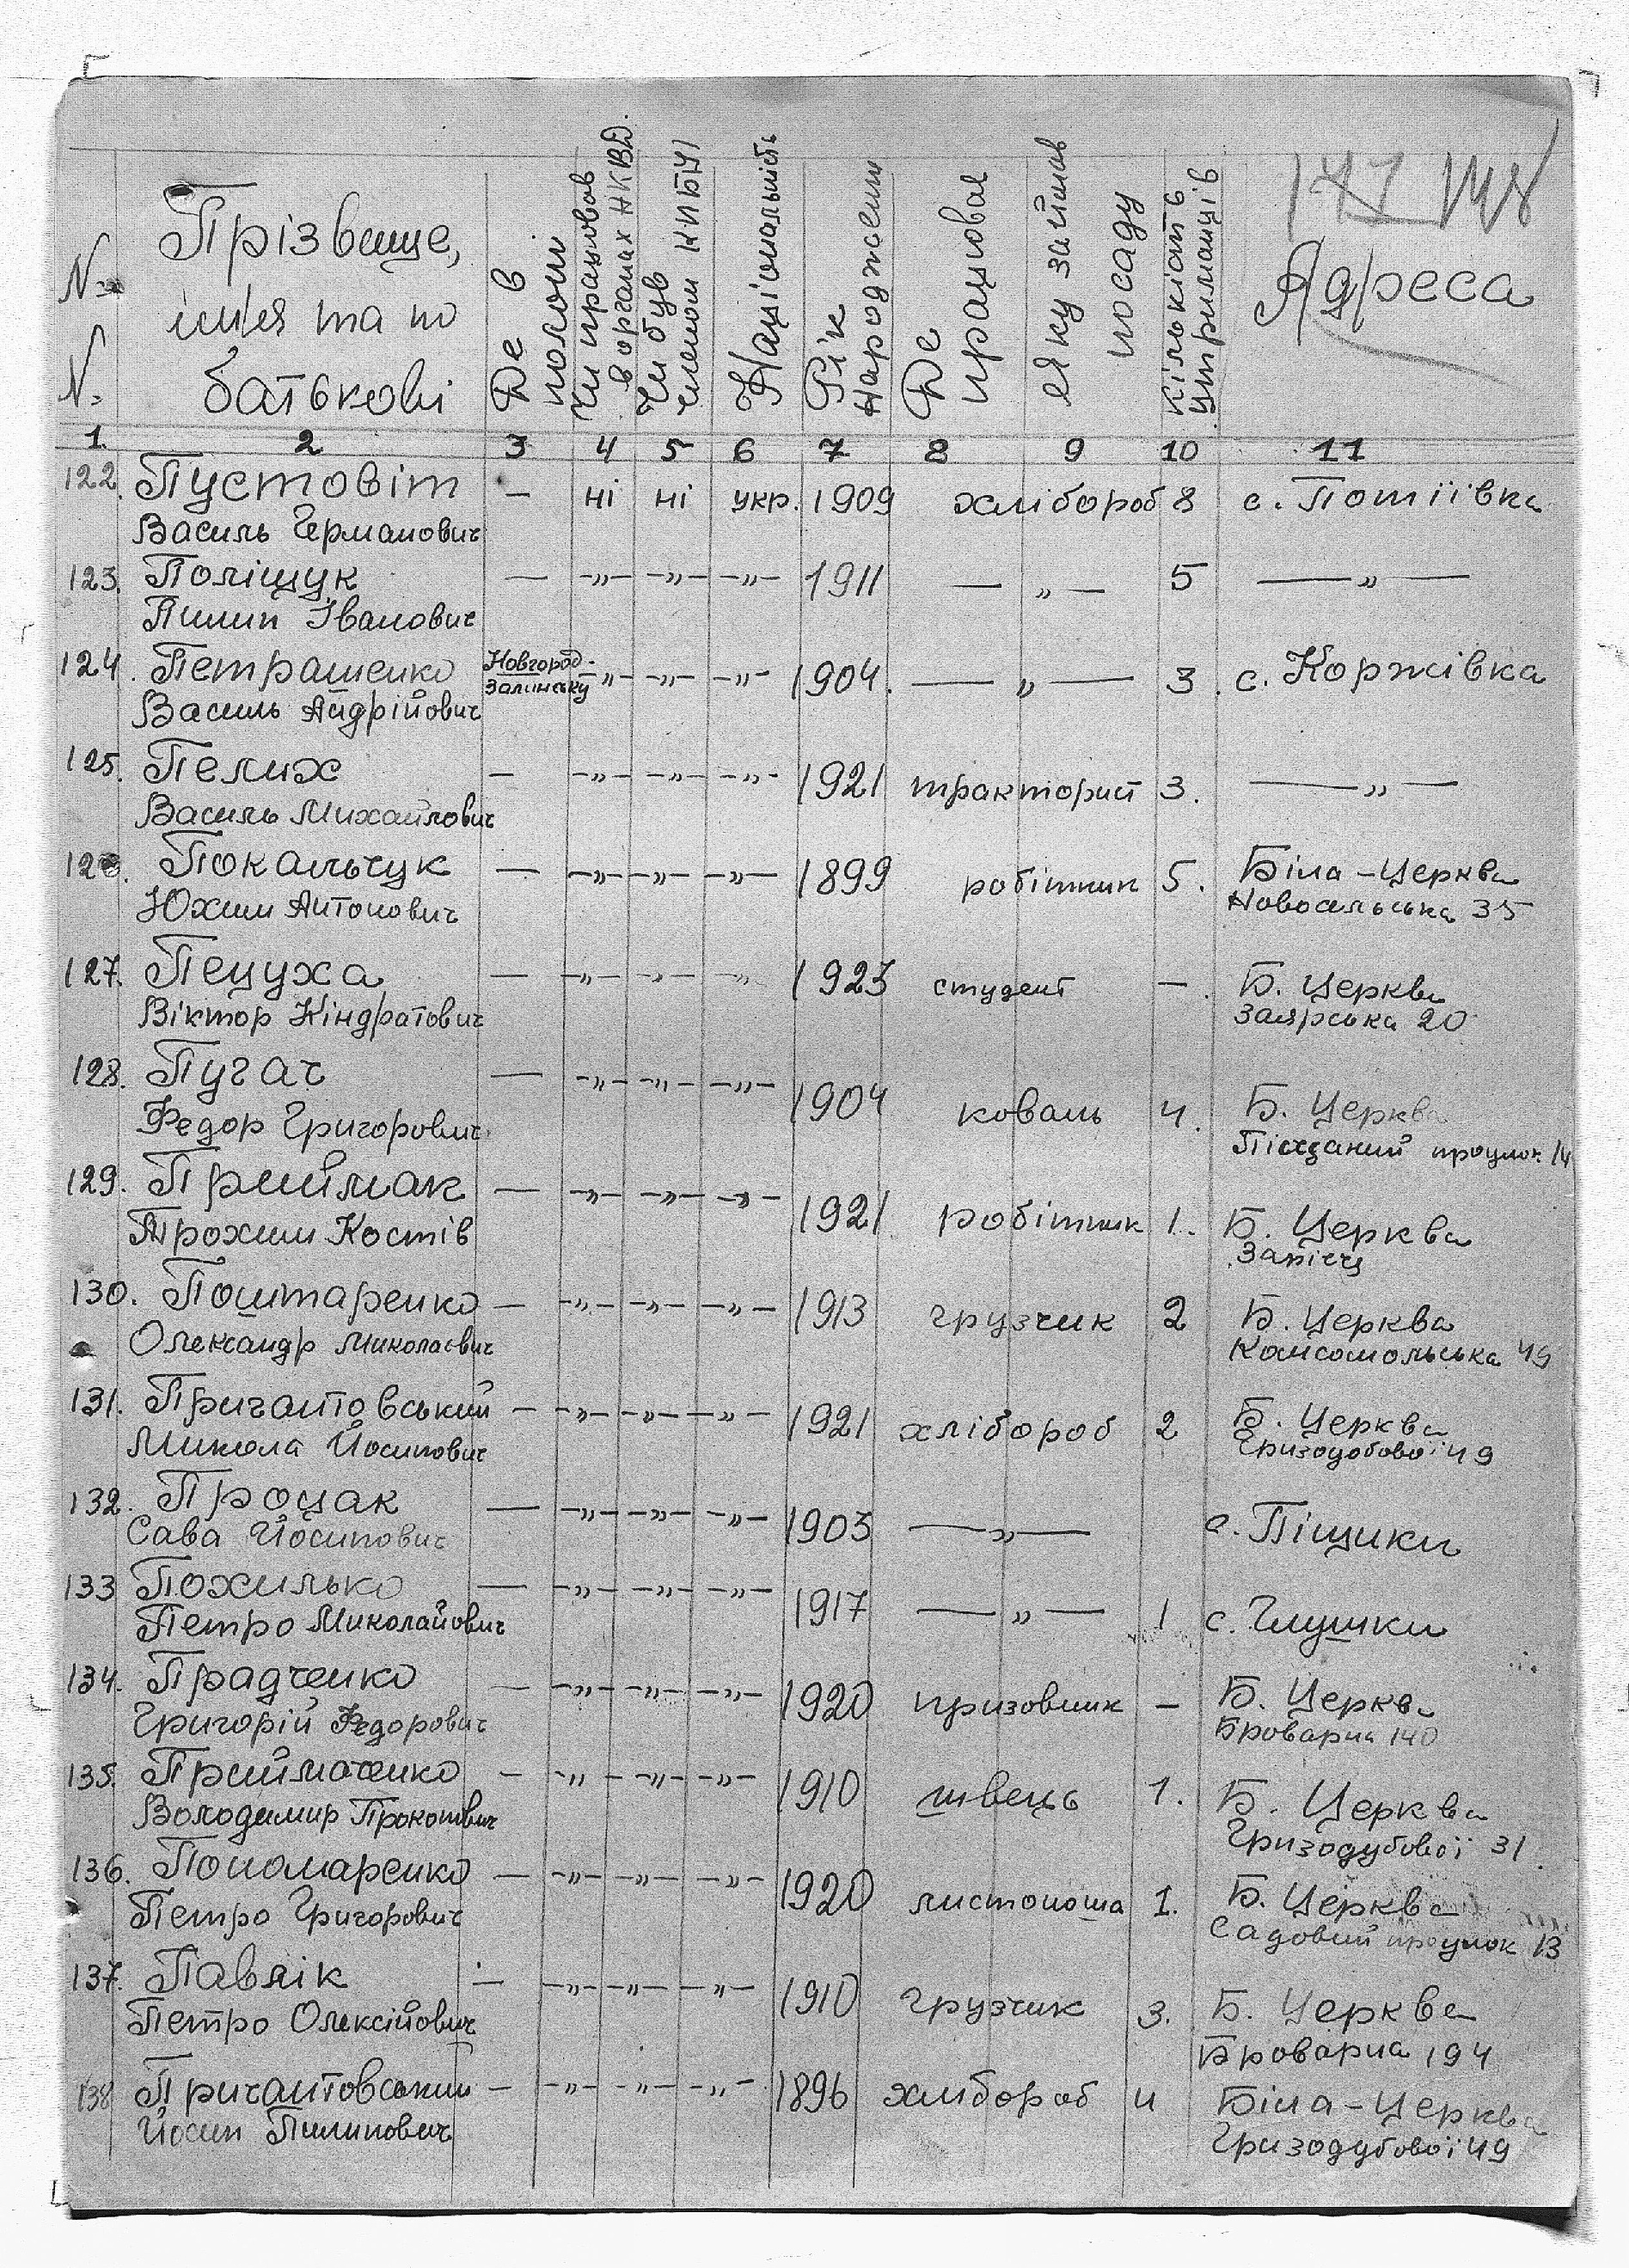 177 178
N- N-
Прізвище,
імʼя та по
батькові
Де в
полоні
Чи працював
в органах НКВД.
Чи був
членом КПБУ
Національність
Рік
Народження
Де
працював
Яку займав
посаду
Кількість
утриманців
Адреса
1. 2 3 4 5 6 7 8 9 10 11
122. Пустовіт — ні ні укр. 1909 хлібороб 8 с. Потіївка
Василь Германович
123. Поліщук — -„- -„- -„- 1911 — „ — 5 — „ —
Пилип Іванович
124. Петрашенко Новгород- -„- -„- -„- 1904. — „ — 3. с. Коржівка
Василь Андрійович
125. Пелих — -„- -„- -„- 1921 тракторист 3. — „ —
Василь Михайлович
126. Покальчук — -„- -„- -„- 1899 робітник 5. Біла-Церква
Юхим Антонович Новосельська 35
127. Пецуха — -„- -„- -„- 1923 студент — Б. Церква
Віктор Кіндратович Заярська 20
128. Пугач — -„- -„- -„- 1904 коваль 4. Б. Церква
Федор Григорович Піщаний проулок 14
129. Приймак — -„- -„- -„- 1921 робітник 1. Б. Церква
Трохим Костів Заріччя
130. Поштаренко — -„- -„- -„- 1913 грузчик 2 Б. Церква
Олександр Миколаєвич Комсомольська 49
131. Пригантовський — -„- -„- -„- 1921 хлібороб 2 Б. Церква
Микола Йосипович Гризодобової 49
132. Процак — -„- -„- -„- 1903 — „ — с. Піщики
Сава Йосипович
133 Похилько — -„- -„- -„- 1917 — „ — 1 с. Глушки
Петро Миколайович
134. Прадченко — -„- -„- -„- 1920 призовник — Б. Церква
Григорій Федорович Броварна 140
135. Приймаченко — -„- -„- -„- 1910 швець 1. Б. Церква
Володимир Прокопович Гризодубової 31
136. Пономаренко — -„- -„- -„- 1920 листоноша 1. Б. Церква
Петро Григорович Садовий проулок 13
137. Павлік — -„- -„- -„- 1910 грузчик 3. Б. Церква
Петро Олексійович Броварна 194
138 Пригантовський — -„- -„- -„- 1896 хлібороб 4 Біла-Церква
Йосип Пилипович Гризодубової 49